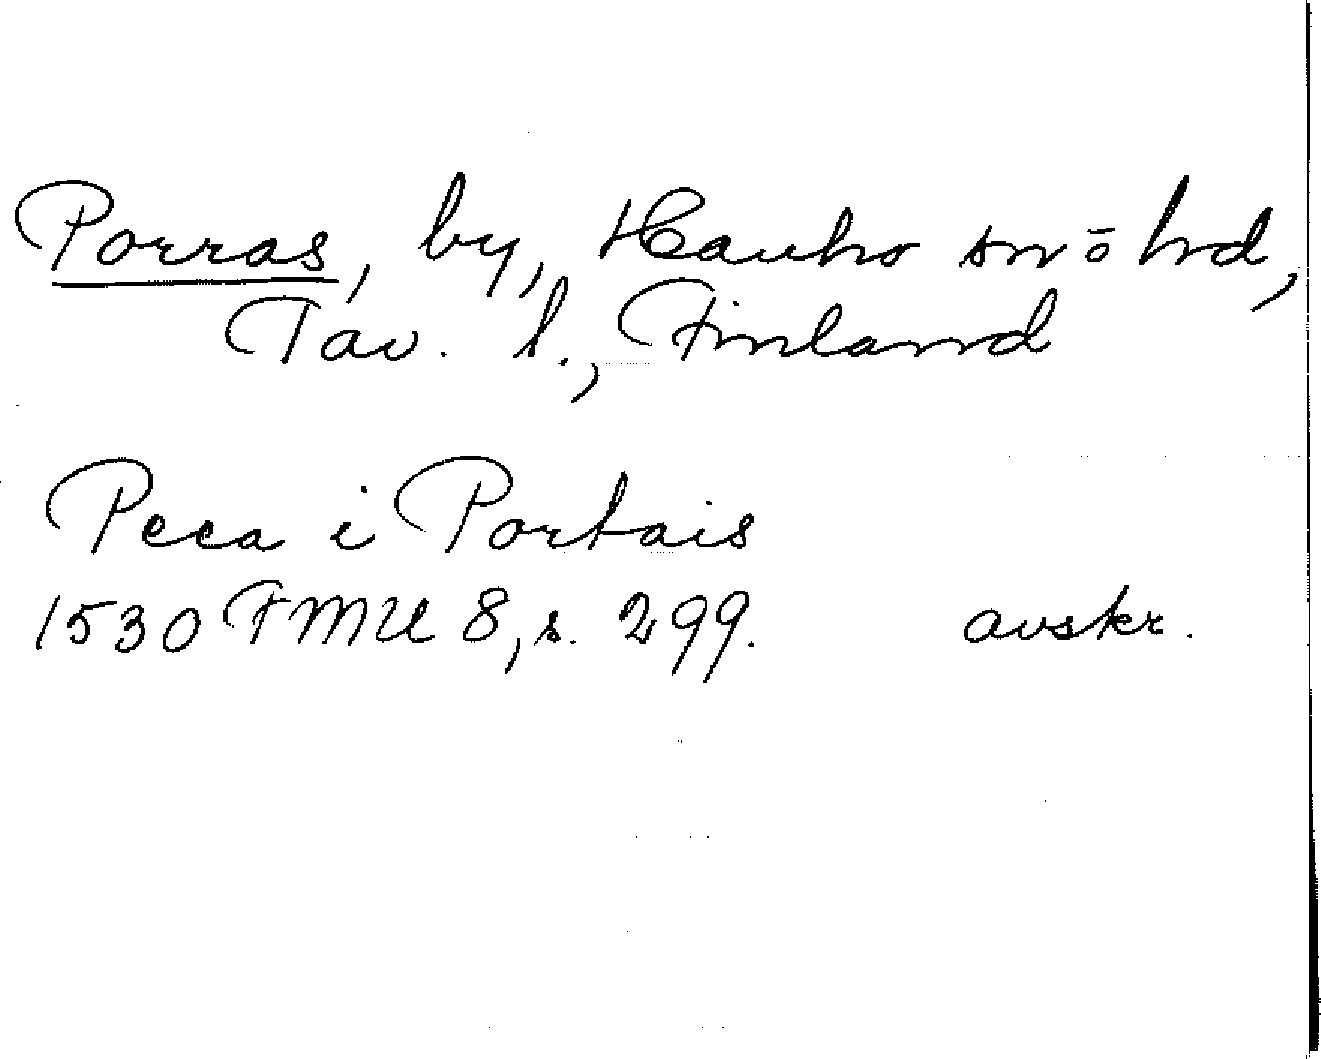 Porras, by, Hauho sn o hd,
Tav. l., Finland
Peca i Portais
1530 FMU 8, s. 299. avskr.